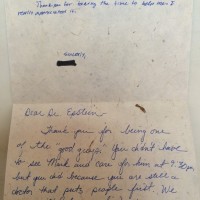 Thank you for taking the time to help me. I
really appreciate it.
Sincerely,
Dear Dr. Epstein
Thank you for being one
of the "good guys." You didn't have
to see Mark and care for him at 9:30pm
but you did because you are still a
doctor that puts people first. We